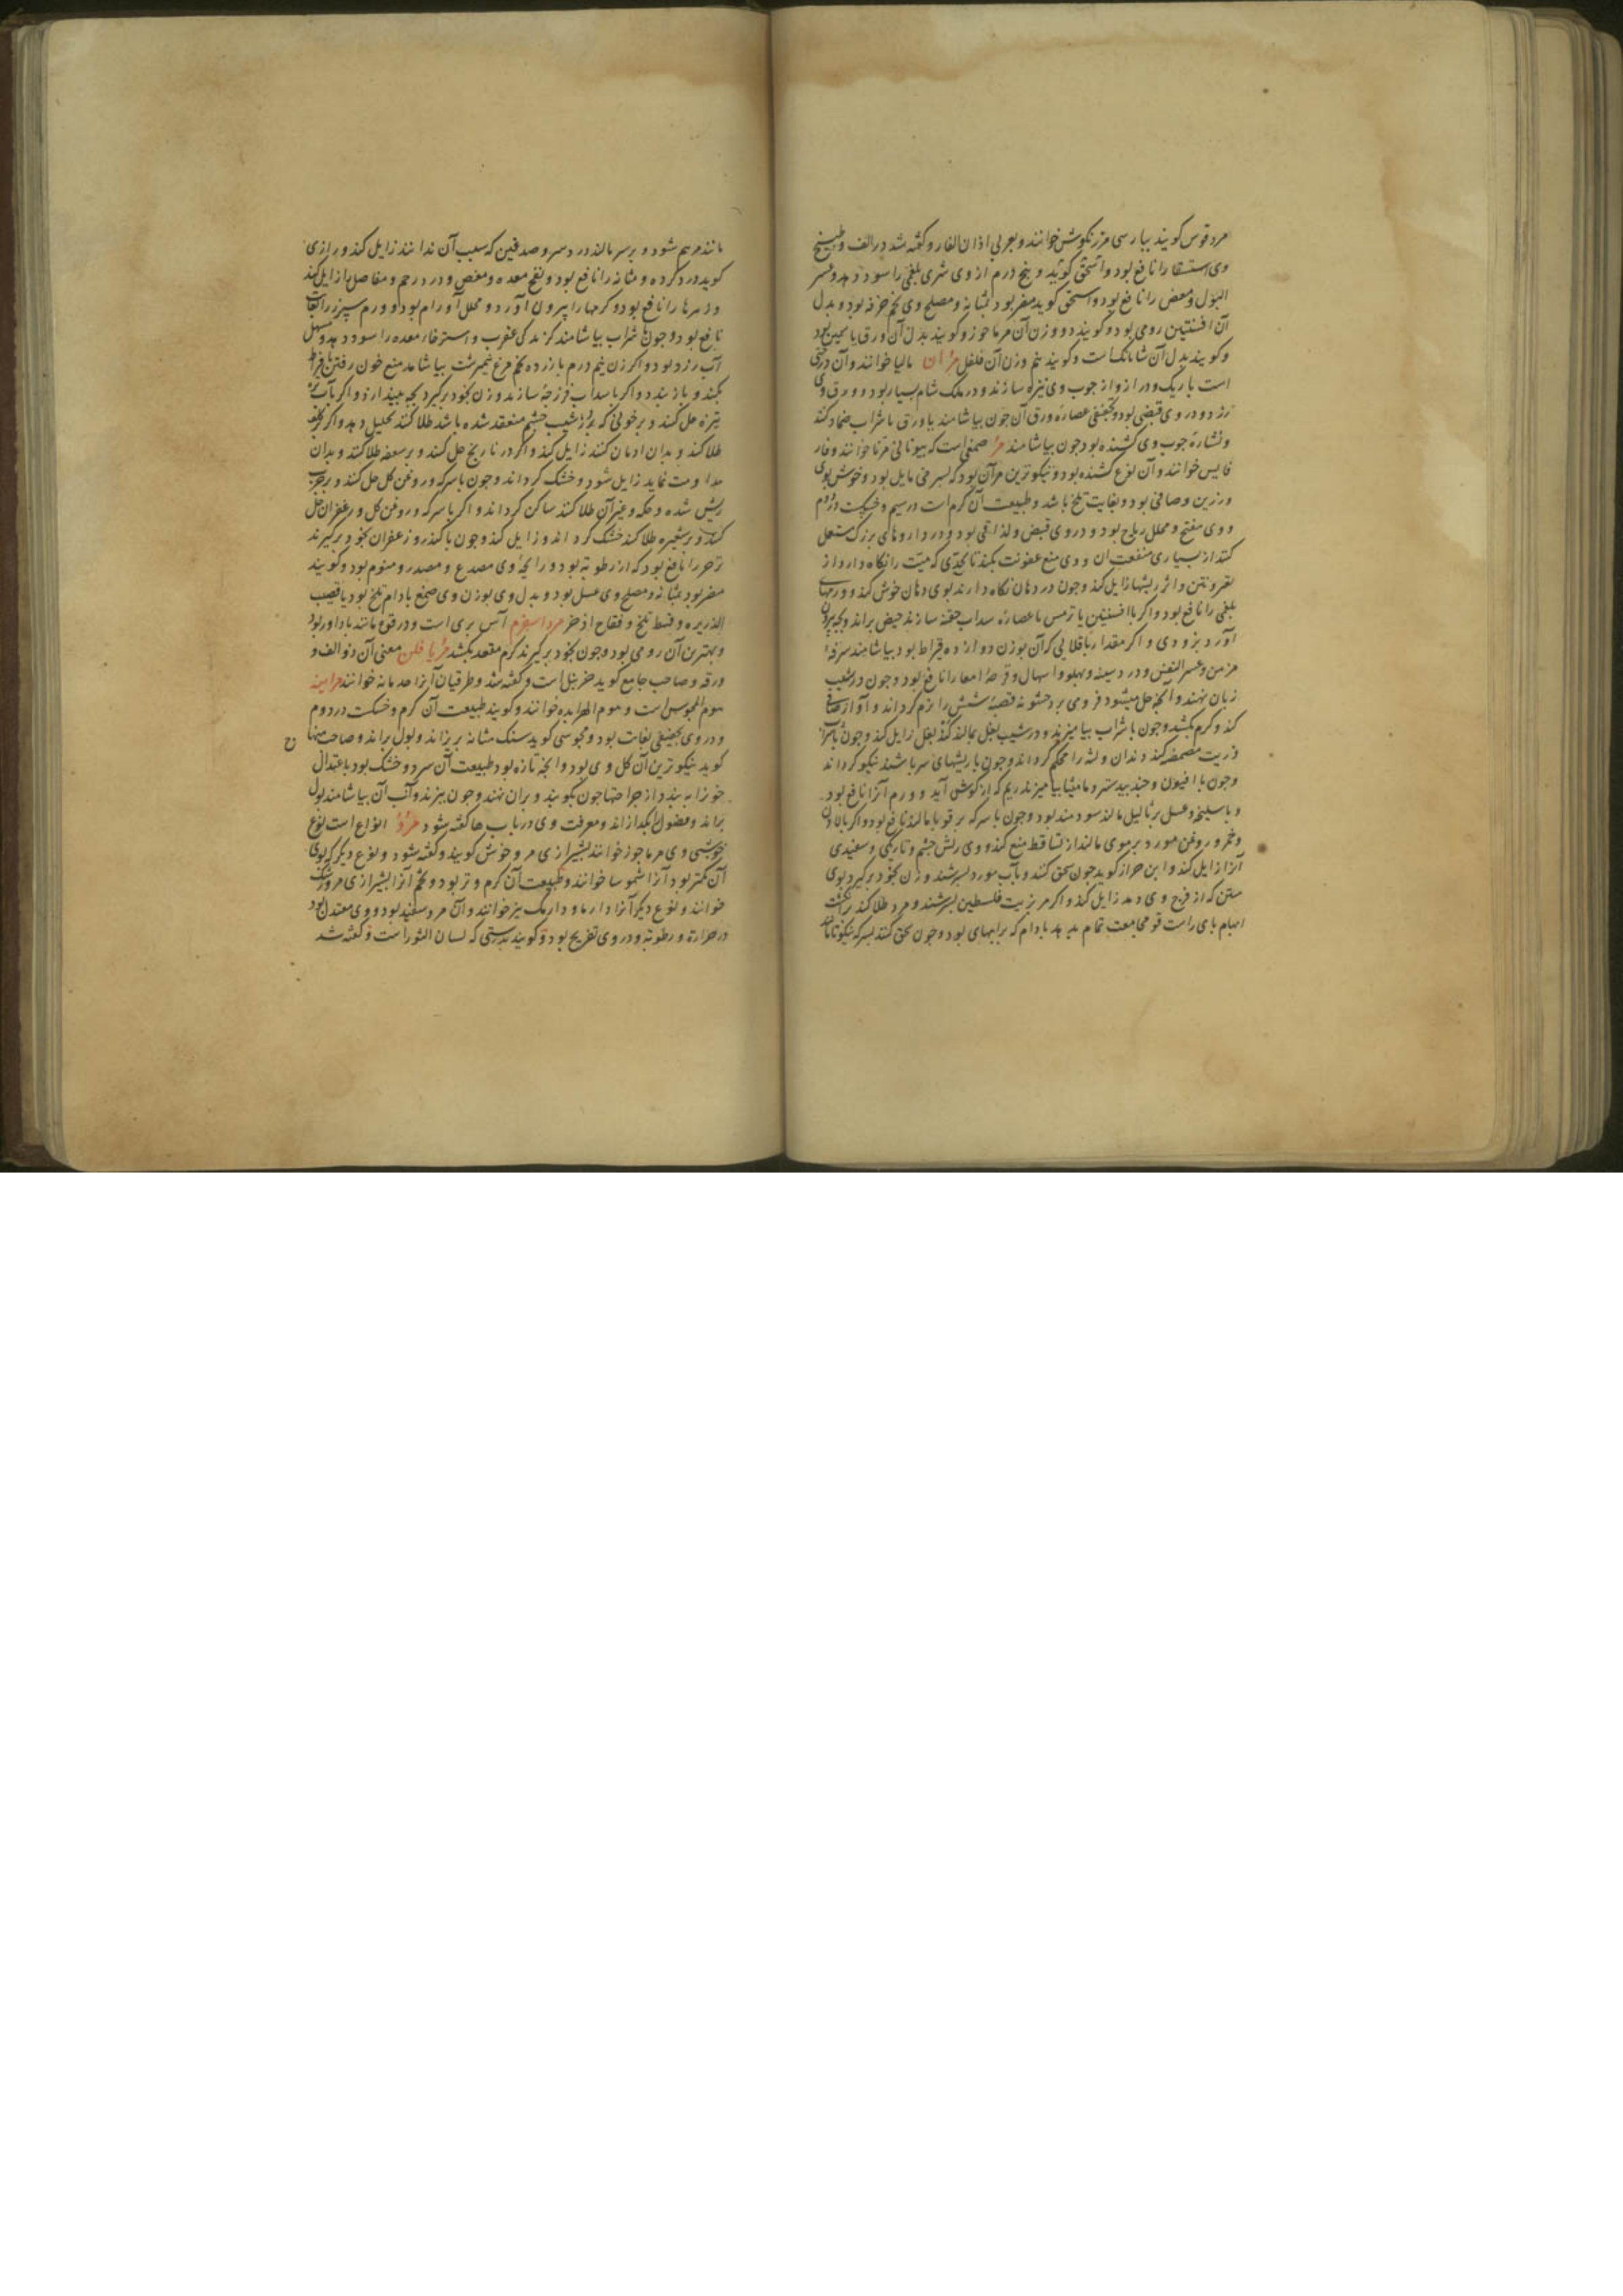 مردقوس کویند بپارسی مرزنکوش خوانند وبعربی اذان الفار وکفته شد در الف وطبیخ
وی استسقا را نافع بود واسحق کوید و پنج درم از وی شری بلغمی را سود دهد وعسر
البول ومغص را نافع بود واسحق کوید مضر بود بمثانه ومصلح وی تخم خرفه بود وبدل
آن افسنتین رومی بود وکویند دو وزن آن مرماحوز وکویند بدل آن ورق یاسمین بود
وکویند بدل آن شابانک است وکویند نیم وزن آن فلفل مران مالیا خوانند وآن درختی
است باریک ودراز واز چوب وی نیزه سازند ودر ملک شام بسیار بود وورق وی
زرد ودر وی قبضی بود وتجفیفی عصاره ورق آن چون بیاشامند یا ورق با شراب ضماد کند
ونشاره چوب وی کشنده بود چون بیاشامند مر صمغی است که بیونانی مرنا خوانند وفار
فایس خوانند وآن نوع کشنده بود ونیکوترین مر آن بود که بسرخی مایل بود وخوش بوی
ورزین وصافی بود وبغایت تلخ باشد وطبیعت آن کرم است در سیم وخشکست در دوم
ووی مفتح ومحلل ریاح بود ودر وی قبض ولذاقی بود ودر داروهای بزرک مستعمل
کنند از بسیاری منفعت آن ووی منع عفونت بکند تا بحدی که میت را نکاه دارد از
تغیر ونتن واثر ریشها زایل کند وچون در دهان نکاه دارند بوی دهان خوش کند وورمهای
بلغمی را نافع بود واکر با افسنتین یا ترمس یا عصاره سداب حقنه سازند حیض براند وبچه بیرون
آورد بزودی واکر مقدار باقلایی که آن بوزن دوازده قیراط بود بیاشامند سرفه
مزمن وعسر النفس ودرد سینه وپهلو واسهال وقرحه امعا را نافع بود وچون در شیب
زبان نهند وآنچه حل میشود فرو می برد خشونه قصبه شش را نرم کرداند وآواز صافی
کند وکرم بکشد وچون با شراب بیامیزند ودر شیب بغل بمالند کند بغل زایل کند وچون با شراب
وزیت مضمضه کند دندان ولثه را محکم کرداند وچون با ریشهای سر باشند نیکو کرداند
وچون با افیون وجندبیدستر ومامیثا بیامیزند ریم که از کوش آید وورم آنرا نافع بود
وبا سلیخه وعسل بر ثالیل مالند سودمند بود وچون با سرکه بر قوبا مالند نافع بود واکر با لادن
وخمر وروغن مورد بر موی مالند از تساقط منع کند ووی ریش چشم وتاریکی وسفیدی
آنرا زایل کند وابن حزاز کوید چون سحق کنند وبآب مورد بسرشند وزن بخود برکیرد بوی
منتن که از فرج وی دمد زایل کند واکر مر بزیت فلسطین بسرشند ومرد طلا کند بر انکشت
ابهام پای راست قوه مجامعت تمام بدهد بادام که بر ابهام پای بود وچون سحق کنند بسرکه نیکو تا
مانند مرهم شود وبر سر مالند درد سر وصدغین که سبب آن ندانند زایل کند ورازی
کوید درد کرده ومثانه را نافع بود ونفخ معده ومغص ودرد رحم ومفاصل را زایل کند
وزهرها را نافع بود وکرمها را بیرون آورد ومحلل اورام بود وورم سپرز را بغایت
نافع بود وچون با شراب بیاشامند کزندکی عقرب واسترخاء معده را سود دهد ومسهل
آب زرد بود واکر زن نیم درم با زرده تخم مرغ نیمبرشت بیاشامد منع خون رفتن بافراط
بکند وباز بندد واکر با سداب فرزجه سازند وزن بخود برکیرد بچه بیندازد واکر بآب
تیزه حل کنند وبر خونی که در شیب چشم منعقد شده باشد طلا کنند تحلیل دهد واکر بر کلف
طلا کنند وبدان ادمان کنند زایل کند واکر در نارنج حل کنند وبر سعفه طلا کنند وبدان
مداومت نماید زایل شود وخشک کرداند وچون با سرکه وروغن کل حل کنند وبر جرب
ریش شده وحکه وغیر آن طلا کنند ساکن کرداند واکر با سرکه وروغن کل وزعفران حل
کنند وبر شعیره طلا کنند خشک کرداند وزایل کند وچون با کندر وزعفران بخود برکیرند
زحیر را نافع بود که از رطوبة بود ورایحه وی مصدع ومصدر ومنوم بود وکویند
مضر بود بمثانه ومصلح وی عسل بود وبدل وی بوزن وی صمغ بادام تلخ بود یا قصب
الذریره وقسط تلخ وفقاح اذخر مرد اسفرم آس بری است وورق وی مانند باداورد بود
وبهترین آن رومی بود وچون بخود برکیرند کرم مقعد بکشد مریافلن معنی آن ذو الف
ورقه وصاحب جامع کوید حزنبل است وکفته شد وطرقیان آنرا هدبانه خوانند مرامیه
موم المجوس است وموم الهرابده خوانند وکویند طبیعت آن کرم وخشکست در دوم
ودر وی تجفیفی بغایت بود ومجوسی کوید سنک مثانه بریزاند وبول براند وصاحب منهاج
کوید نیکوترین آن کل وی بود وآنچه تازه بود طبیعت آن سرد وخشک بود باعتدال
خون را ببندد از جراحتها چون بکویند وبران نهند وچون بپزند وآب آن بیاشامند بول
براند وفضول بکدازاند ومعرفت وی در باب ها کفته شود مرو انواع است نوع
خوشبوی مرماحوز خوانند بشیرازی مروخوش کویند وکفته شود ونوع دیکر که بوی
آن کمتر بود آنرا شموسا خوانند وطبیعت آن کرم وتر بود وتخم آنرا بشیرازی مرورشک
خوانند ونوع دیکر آنرا دارما ودارمک نیز خوانند وآن مرو سفید بود ووی معتدل بود
در حرارة ورطوبة ودر وی تفریح بود وکویند بدرستی که لسان الثور است وکفته شد